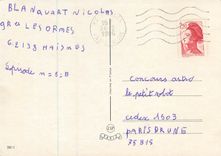 BLANQUART NICOLAS
9 RUE LES ORMES
62138 HAISNES
Episode n=5.B
concours astro
le petit robot
cedex 1503
PARIS BRUNE
75815